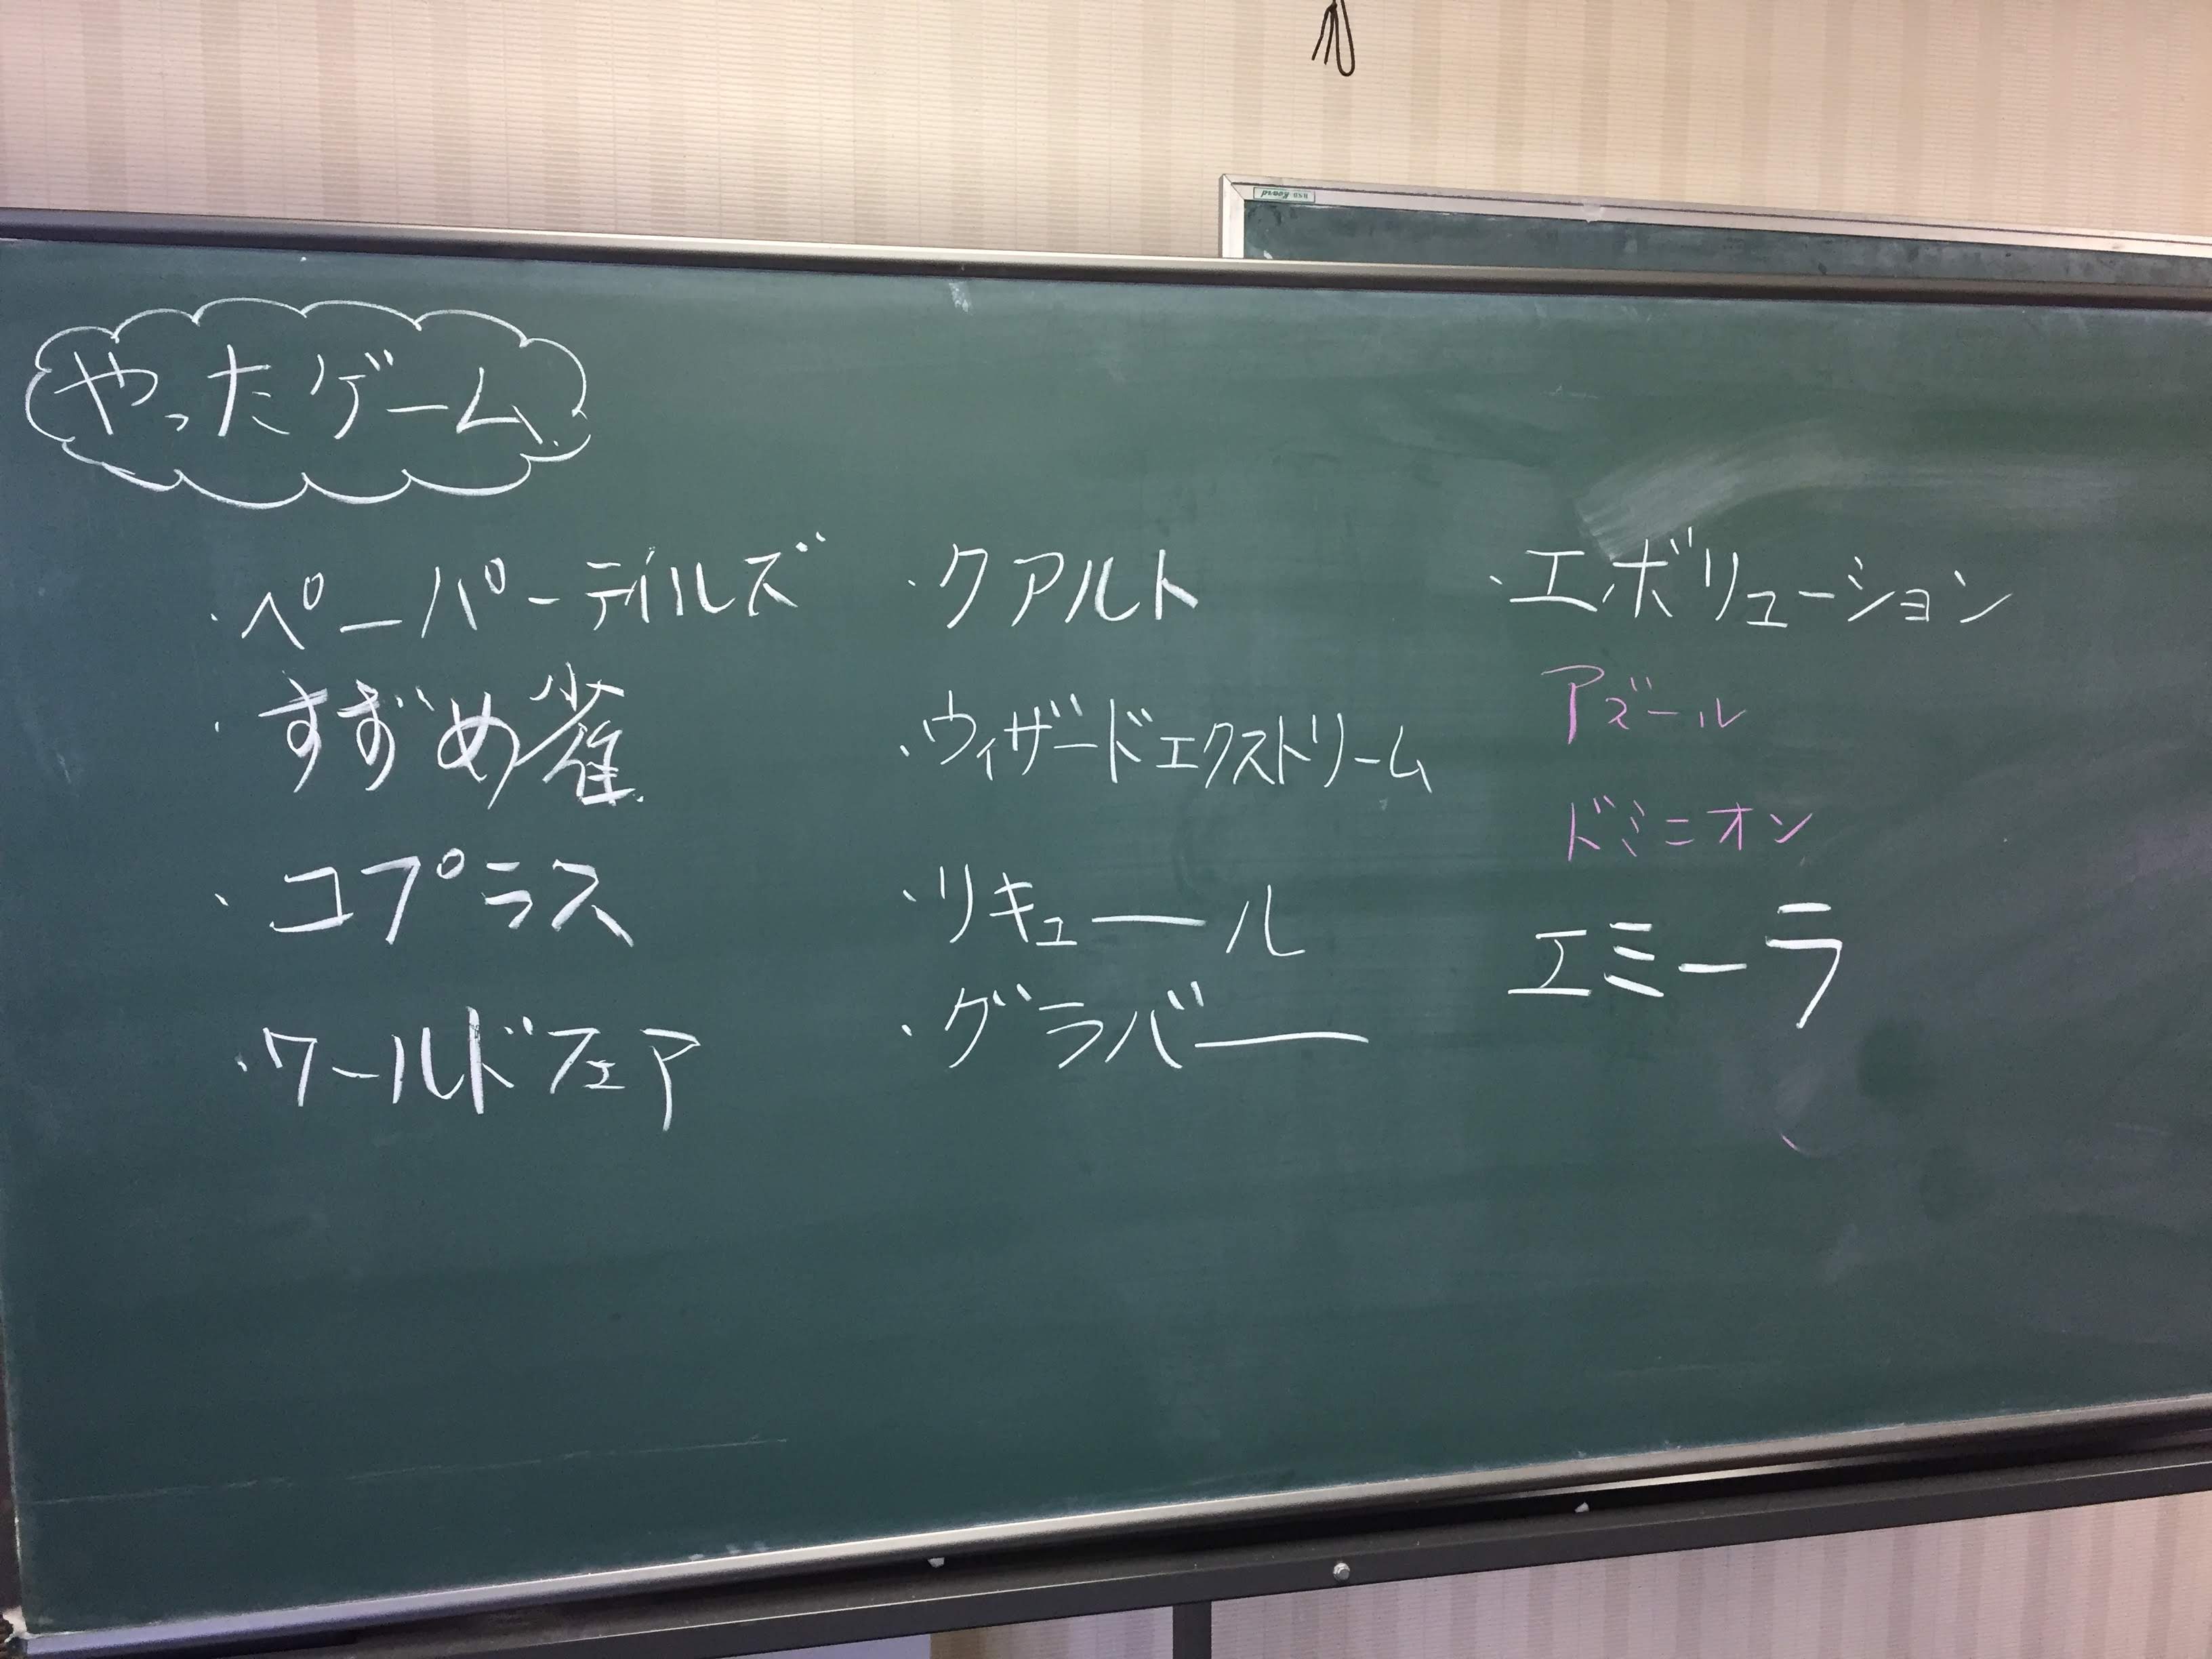 やったゲーム
・ペーパーテイルズ
・すずめ雀
・コプラス
・ワールドフェア
・クアルト
・ウィザードエクストリーム
・リキュール
・グラバー
・エボリューション
アズール
ドミニオン
エミーラ